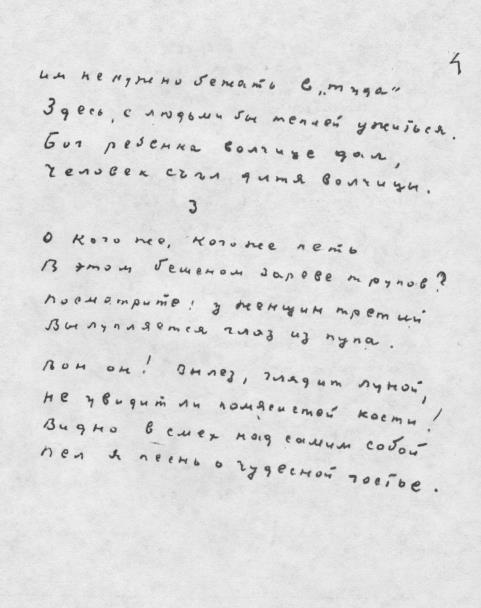 4
им не нужно бежать в „туда“
Здесь, с людьми бы теплей ужиться.
Бог ребенка волчице дал,
Человек съел дитя волчицы.
3
О кого же, кого же петь
В этом бешеном зареве трупов?
Посмотрите! у женщин третий
Вылупляется глаз из пупа.
Вон он! Вылез, глядит луной,
не увидит ли помясистей кости!
Видно в смех над самим собой
Пел я песнь о чудесной гостье.